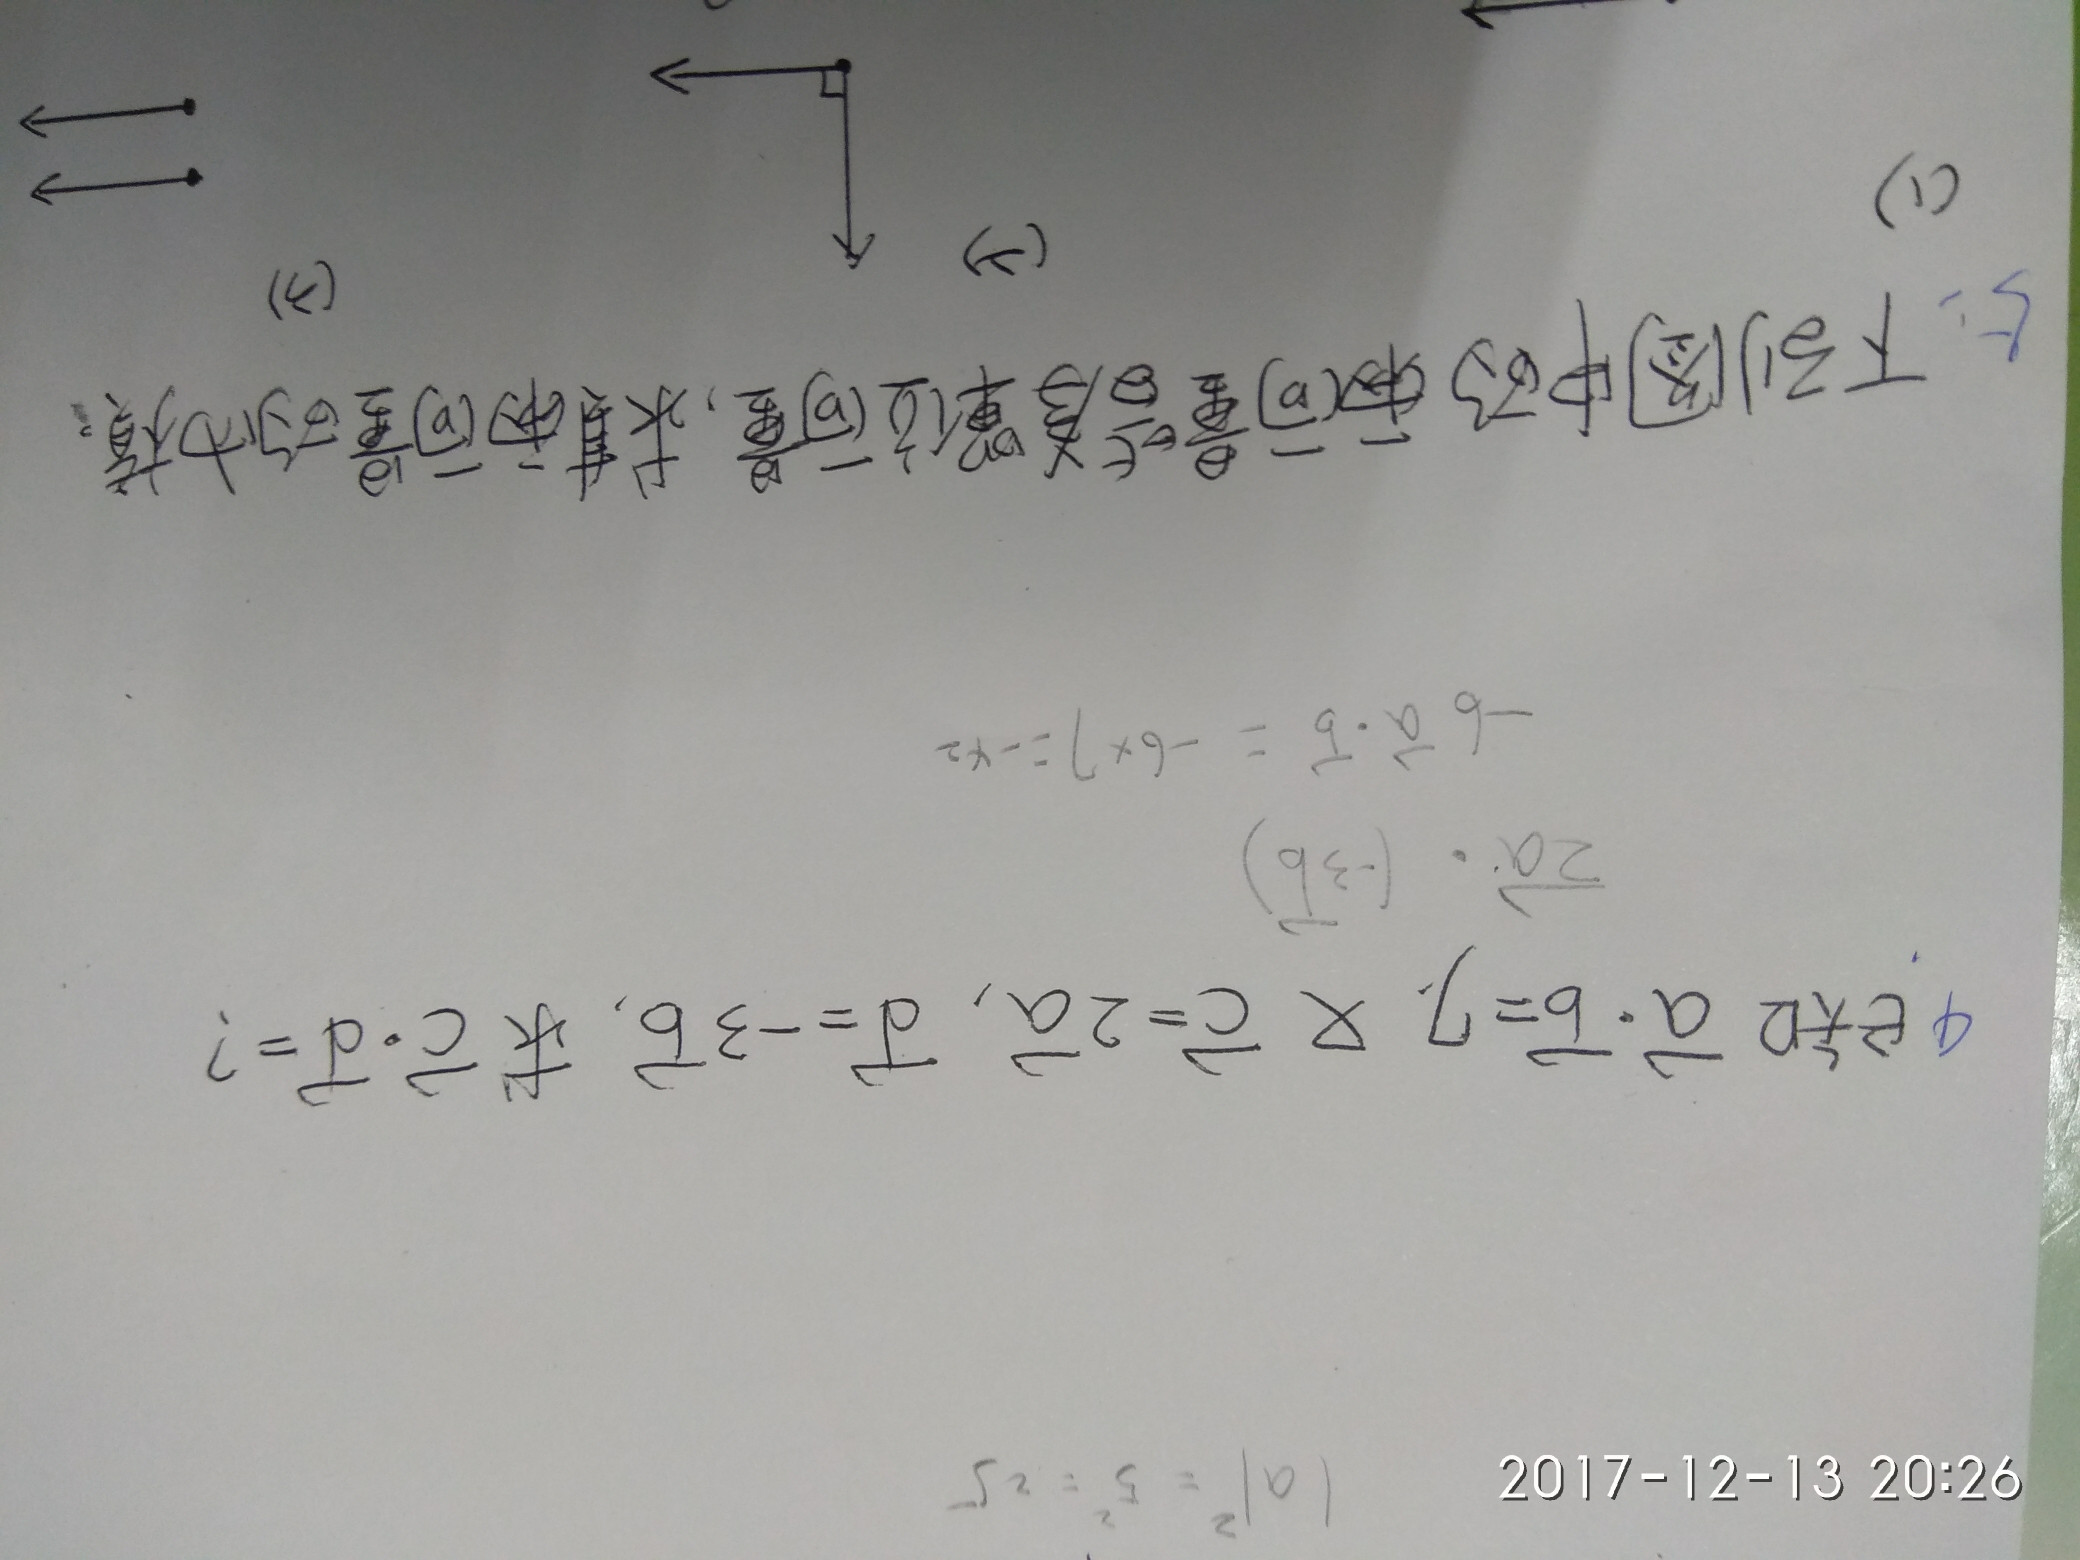 |a|² = 5² = 25
4. 已知 a⃗·b⃗=7, 又 c⃗=2a⃗, d⃗=-3b⃗, 求 c⃗·d⃗=?
2a⃗·(-3b⃗)
-6a⃗·b⃗ = -6×7=-42
5. 下列圖中的兩向量皆為單位向量, 求其兩向量的內積。
(1) (2) (3)
2017-12-13 20:26